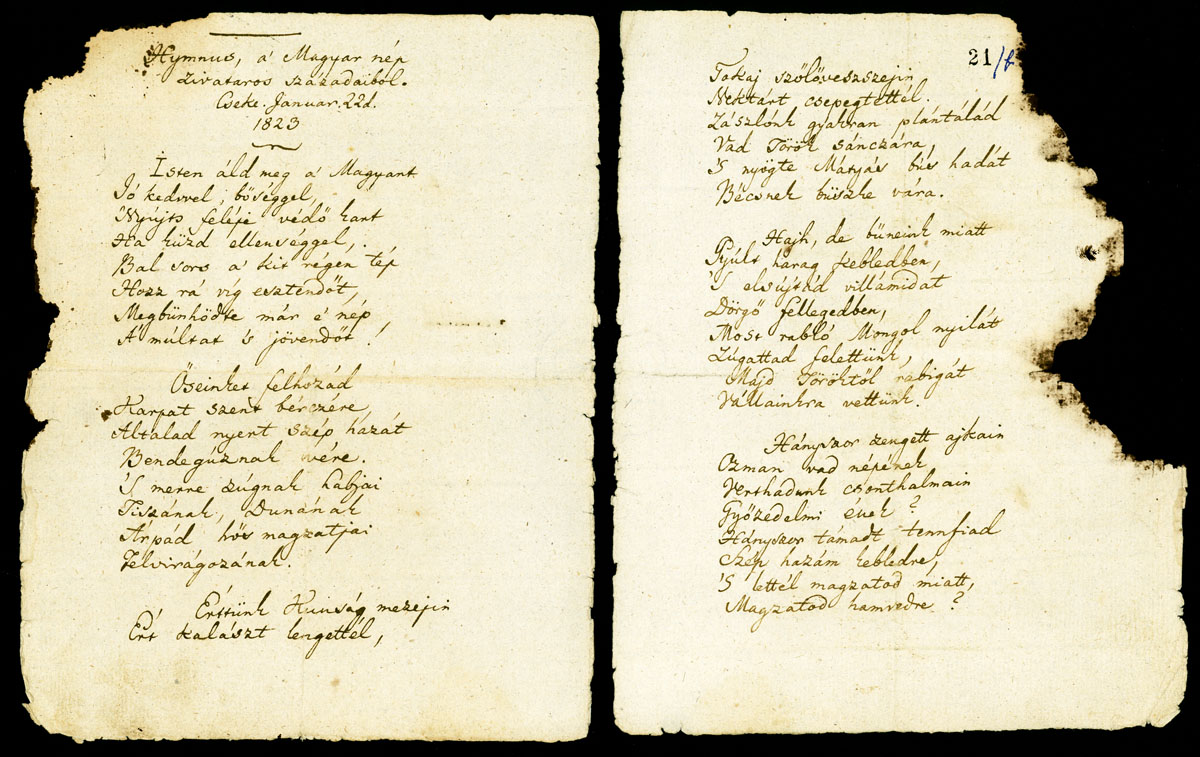 Hymnus, a' Magyar nép
Zivataros századaiból.
Cseke. Januar. 22d.
1823
Isten áld meg a' Magyart
Jó kedvvel, bőséggel,
Nyújts feléje védő kart
Ha küzd ellenséggel,
Bal sors a' kit régen tép
Hozz rá víg esztendőt,
Megbűnhödte már e' nép
A' múltat 's jövendőt!
Őseinket felhozád
Kárpát szent bérczére,
Általad nyert szép hazát
Bendegúznak vére.
'S merre zúgnak habjai
Tiszának, Dunának
Árpád hős magzatjai
Felvirágozának.
Értünk Kunság mezejin
Ért kalászt lengettél,
21/b
Tokaj szőlővesszejin
Nektárt csepegtettél.
Zászlónk gyakran plántálád
Vad Török sánczára,
'S nyögte Mátyás bús hadát
Bécsnek büszke vára.
Hajh, de bűneink miatt
Gyúlt harag kebledben,
'S elsújtád villámidat
Dörgő fellegedben,
Most rabló Mongol nyilát
Zúgattad felettünk,
Majd Töröktől rabigát
Vállainkra vettünk.
Hányszor zengett ajkain
Ozman vad népének
Vert hadunk csonthalmain
Győzedelmi ének?
Hányszor támadt tennfiad
Szép hazám kebledre,
'S lettél magzatod miatt,
Magzatod hamvvedre?